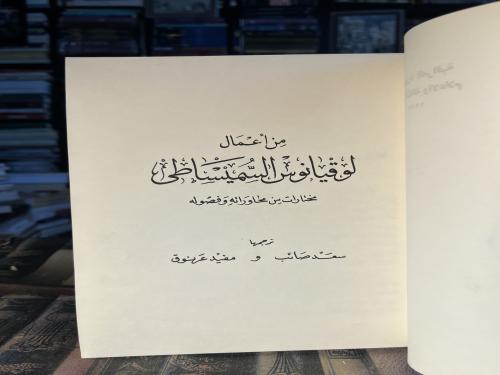 من أعمال
لوقيانوس السميساطي
مختارات من محاوراته وفصوله
ترجمها
سعد صائب و مفيد عرنوق